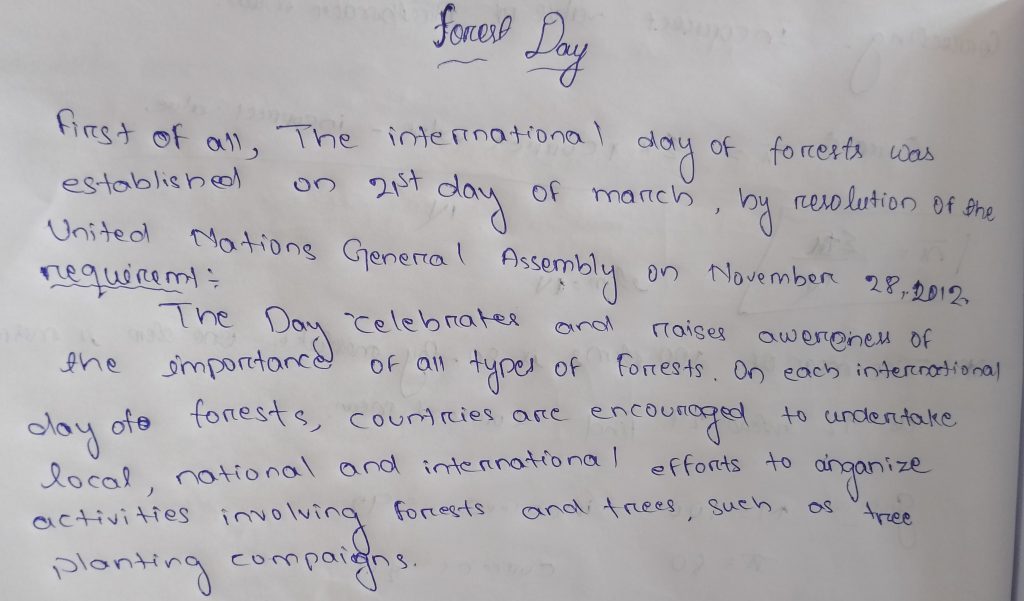 Forest Day
First of all, The international day of forests was
established on 21st day of march, by resolution of the
United Nations General Assembly on November 28, 2012.
requiremt:
The Day celebrates and raises awereness of
the importance of all types of forests. On each international
day of forests, countries are encouraged to undertake
local, national and international efforts to organize
activities involving forests and trees, such as tree
planting compaigns.